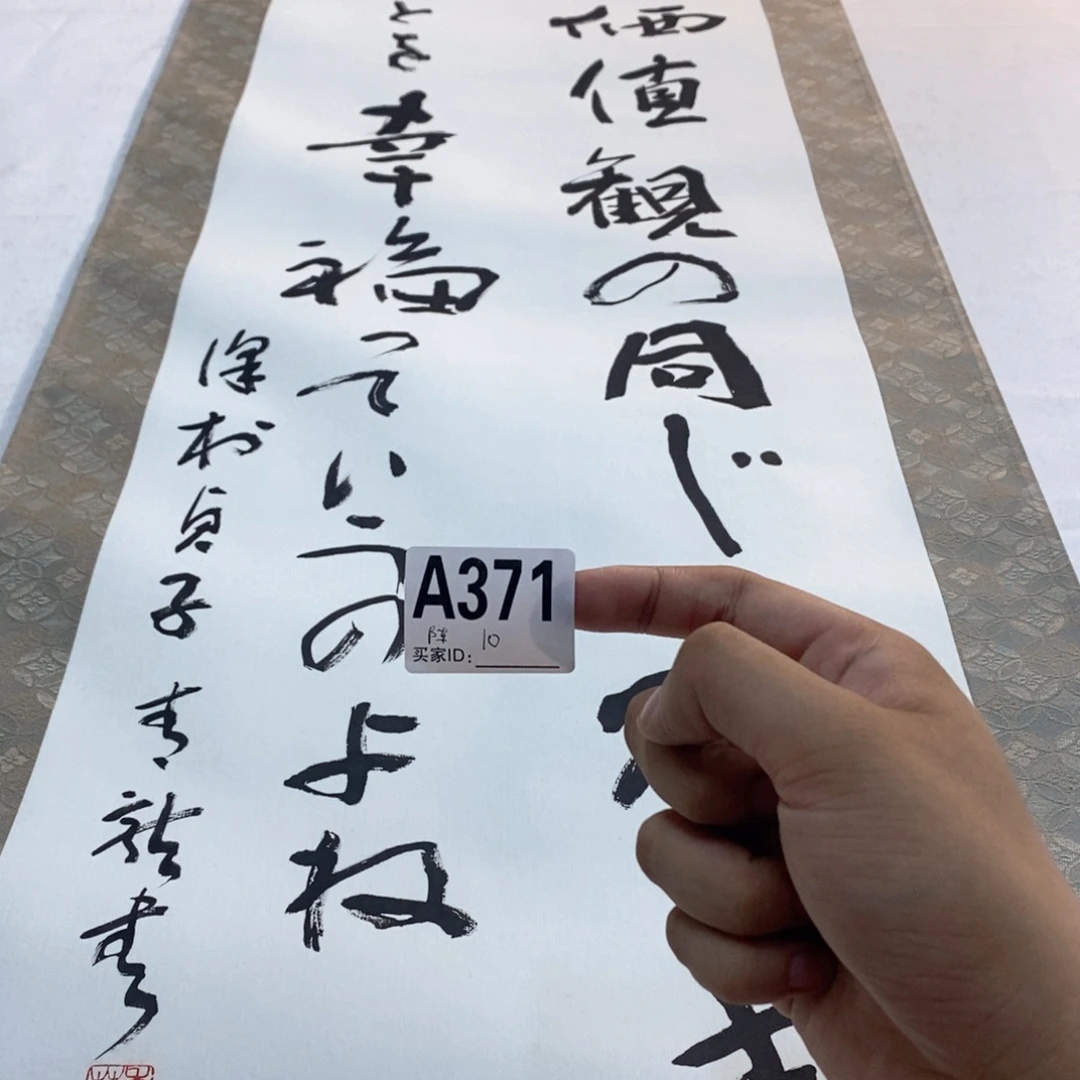 価値観の同じ
とき幸福っていうのよね
深村貞子 青龍書
A371
陈 10
买家ID: